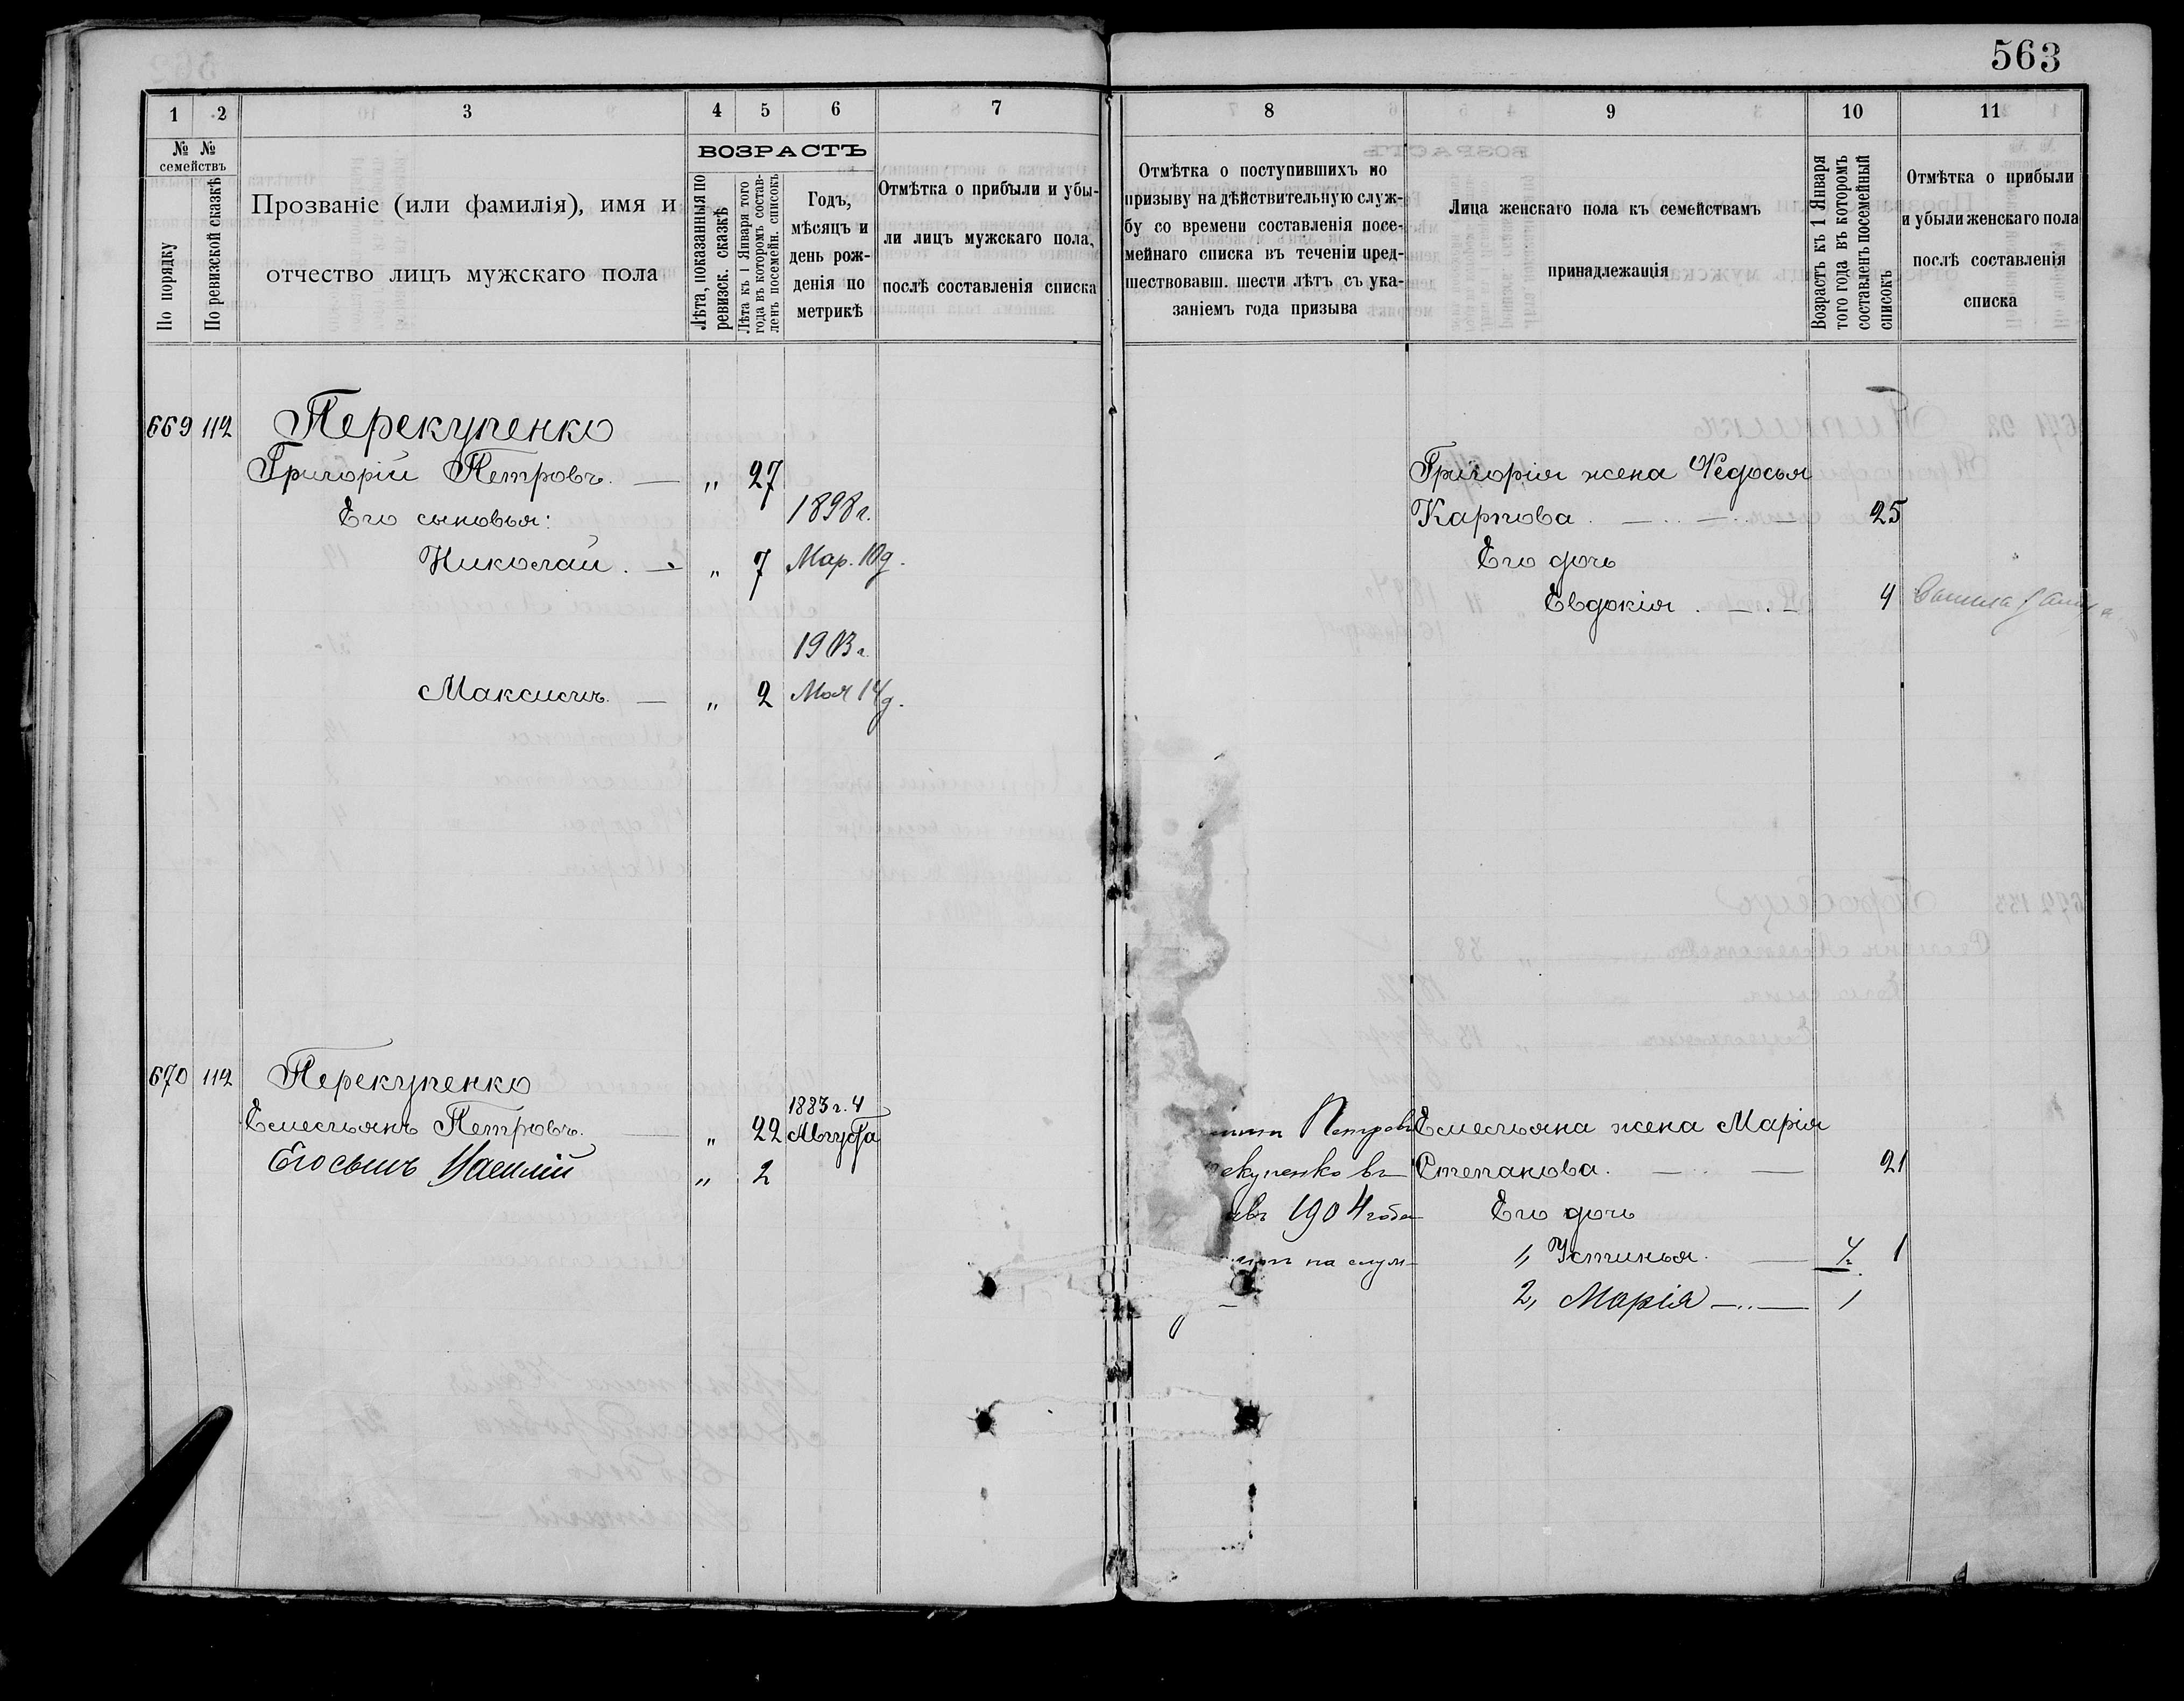 563
1 2 3 4 5 6 7
№ № семействъ
По порядку
По ревизской сказкѣ
Прозваніе (или фамилія), имя и
отчество лицъ мужскаго пола
ВОЗРАСТЪ
Лѣта, показанныя по
ревизск. сказкѣ
Лѣта къ 1 Января того
года въ которомъ состав-
ленъ посемейн. списокъ
Годъ,
мѣсяцъ и
день рож-
денія по
метрикѣ
Отмѣтка о прибыли и убы-
ли лицъ мужскаго пола,
послѣ составленія списка
8 9 10 11
Отмѣтка о поступившихъ по
призыву на дѣйствительную служ-
бу со времени составленія посе-
мейнаго списка въ теченіи пред-
шествовавш. шести лѣтъ съ ука-
заніемъ года призыва
Лица женскаго пола къ семействамъ
принадлежащія
Возрастъ къ 1 Января
того года въ которомъ
составленъ посемейный
списокъ
Отмѣтка о прибыли
и убыли женскаго пола
послѣ составленія
списка
669 112 Перекупенко
Григорій Петровъ. — „ 27
Его сыновья: 1898 г.
Николай. — „ 7 Мар. 10 д.
1903 г.
Максимъ. — „ 2 Мая 14 д.
Григорія жена Федосья
Карпова. — 25
Его дочь
Евдокія. — 4
670 112 Перекупенко
1883 г. 4
Емельянъ Петровъ. — „ 22 Августа
Его сынъ Василій „ 2
Петровъ
екупенко въ
1904 года
на служ-
Емельяна жена Марія
Степанова. — 21
Его дочь
1, Устинья. — 1
2, Марія — 1